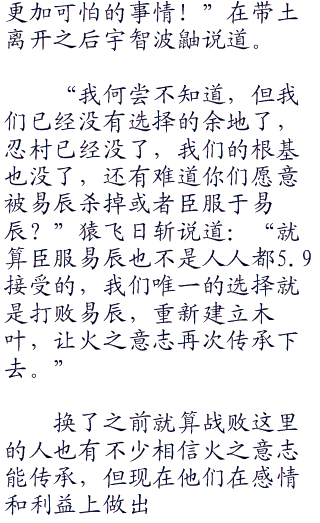 更加可怕的事情！”在带土
离开之后宇智波鼬说道。
“我何尝不知道，但我
们已经没有选择的余地了，
忍村已经没了，我们的根基
也没了，还有难道你们愿意
被易辰杀掉或者臣服于易
辰？”猿飞日斩说道：“就
算臣服易辰也不是人人都5.9
接受的，我们唯一的选择就
是打败易辰，重新建立木
叶，让火之意志再次传承下
去。”
换了之前就算战败这里
的人也有不少相信火之意志
能传承，但现在他们在感情
和利益上做出